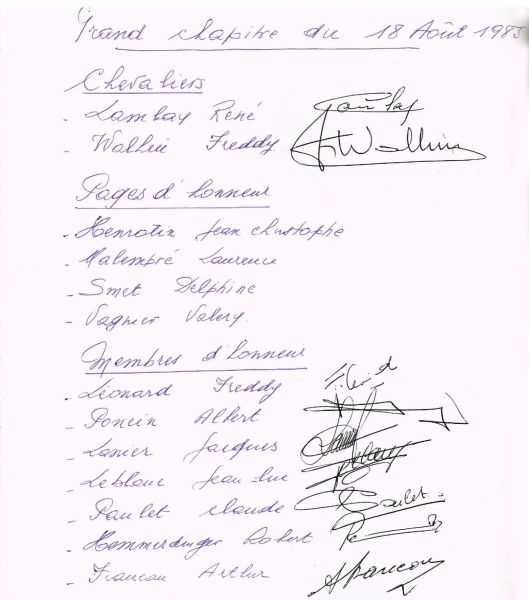 Grand chapitre du 18 Août 1985
Chevaliers
- Lambay René
- Wathieu Freddy
Pages d'honneur
- Henrotin Jean christophe
- Malempré Laurence
- Smet Delphine
- Vagnier Valery.
Membres d'honneur
- Léonard Freddy
- Poncin Albert
- Lanier Jacques
- Leblanc Jean-luc
- Paulet claude
- Hemmerdinger Robert
- Francou Arthur